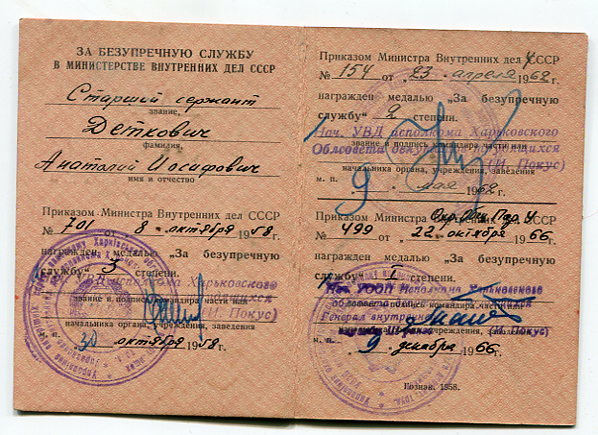 ЗА БЕЗУПРЕЧНУЮ СЛУЖБУ
В МИНИСТЕРСТВЕ ВНУТРЕННИХ ДЕЛ СССР
Старший сержант
звание,
Деткович
фамилия,
Анатолий Иосифович
имя и отчество
Приказом Министра Внутренних дел СССР
№ 701 от 8 октября 1958 г.
награжден медалью „За безупречную
службу" 3 степени.
исполкома Харьковского
звание и подпись командира части или
(И. Покус)
начальника органа, учреждения, заведения
30 октября 1958 г.
Приказом Министра Внутренних дел СССР
№ 154 от 23 апреля 1962 г.
награжден медалью „За безупречную
службу" 2 степени.
Нач. УВД исполкома Харьковского
звание и подпись командира части или
Облсовета депутатов трудящихся
(И. Покус)
начальника органа, учреждения, заведения
м. п. 9 мая 1962 г.
Приказом Министра Внутренних дел
№ 499 от 22 октября 1966 г.
награжден медалью „За безупречную
службу" I степени.
Нач. УООП Исполкома Харьковского
звание и подпись командира части или
Генерал внутренней
(И. Покус)
начальника органа, учреждения, заведения
9 декабря 1966 г.
Гознак. 1958.